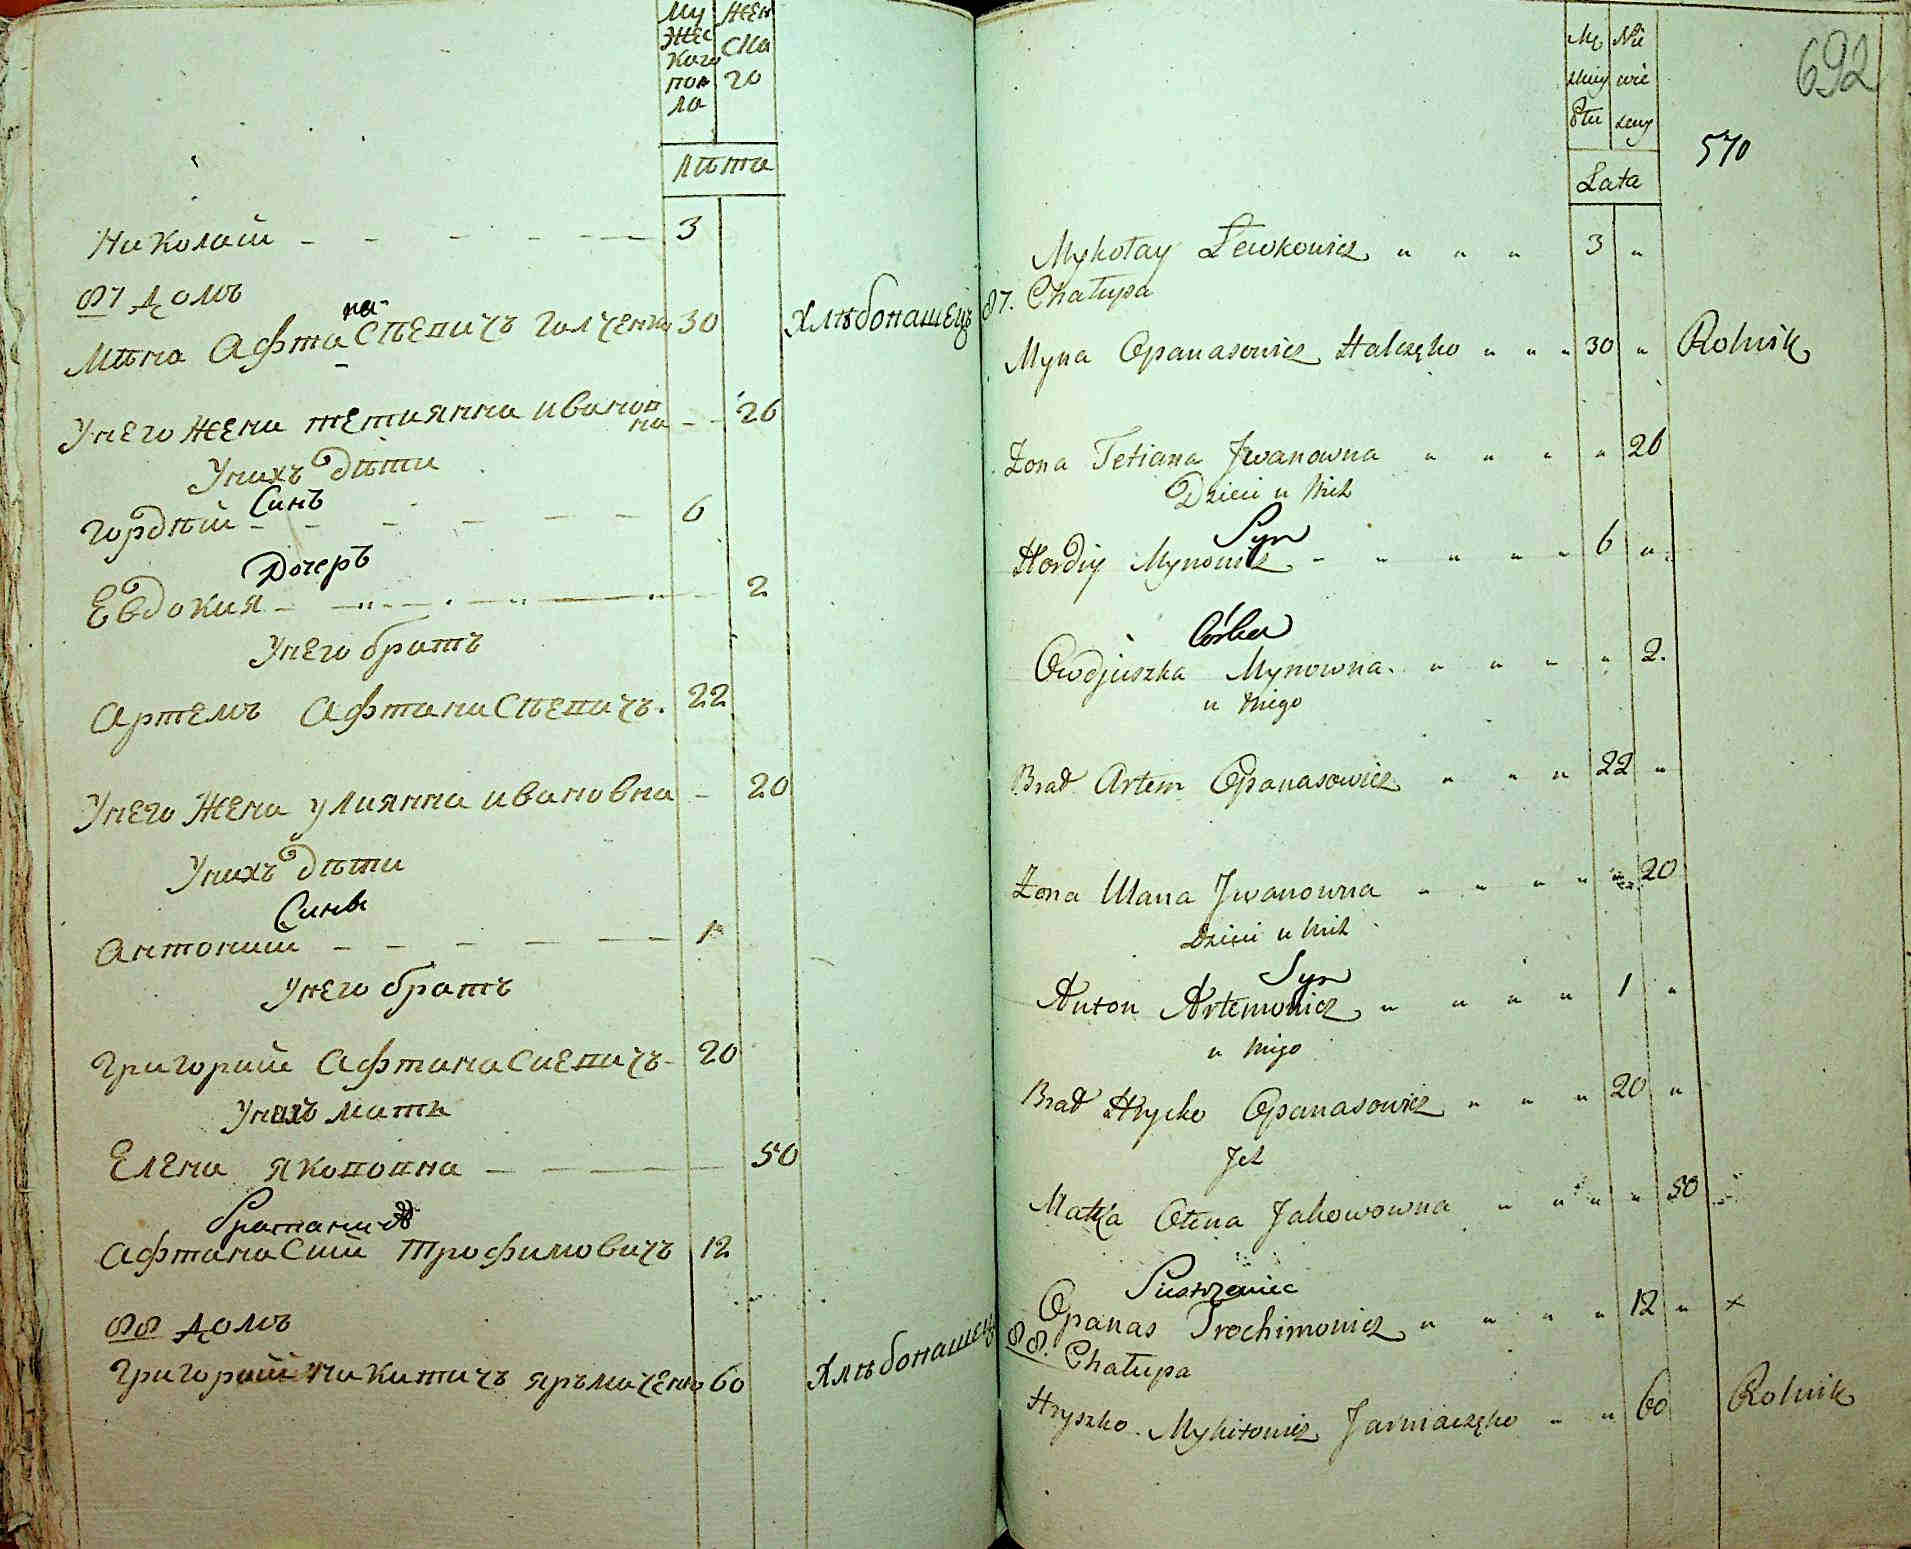 Му
жес
каго
пол
ла
Жен
ска
го
Лѣта
Николай 3
87 домъ
на
Мина Афтанасѣевичъ Голченко 30 Хлѣбопашецъ
Унего жена Тетиянна Иванов
на 26
Унихъ дѣти
Синъ
Гордѣй 6
Дочеръ
Евдокия 2
Унего братъ
Артемъ Афтанасѣевичъ 22
Унего жена Улиянна Ивановна 20
Унихъ дѣти
Синъ
Антоний 1
Унего братъ
Григорий Афтанасиевичъ 20
Унихъ мать
Елена Якововна 50
Афтанасий Трофимовичъ 12
88 домъ
Григорий Никитичъ Ярмаченко 60 Хлѣбопашецъ
692
570
Lata
Mykołay Lewkowicz " " " 3 "
87. Chałupa
Myna Opanasowicz Halczęko " " " 30 " Rolnik
Żona Tetiana Jwanowna " " " " 26
Dzieci u Nich
Syn
Hordiy Mynowicz 6 "
Córka
Owdjuszka Mynowna " " " " 2.
u Niego
Brat Artem Opanasowicz " " " 22 "
Żona Ulana Jwanowna " " " " 20
Dzieci u Nich
Syn
Anton Artemowicz " " " " 1 "
u Niego
Brat Hrycko Opanasowicz " " " 20 "
Jch
Matka Ołena Jakowowna " " " " 50
Siostrzeniec
Opanas Trochimowicz " " " " 12 " x
88. Chałupa
Hryszko Mykitowicz Jarmaczęko " " 60 Rolnik